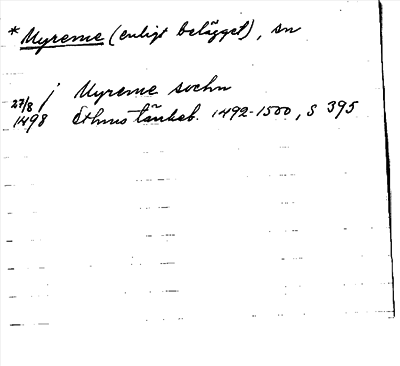 * Myreme (enligt belägget), sn
j Myreme sochn
27/8
1498 Sthms tänkeb. 1492-1500, s 395